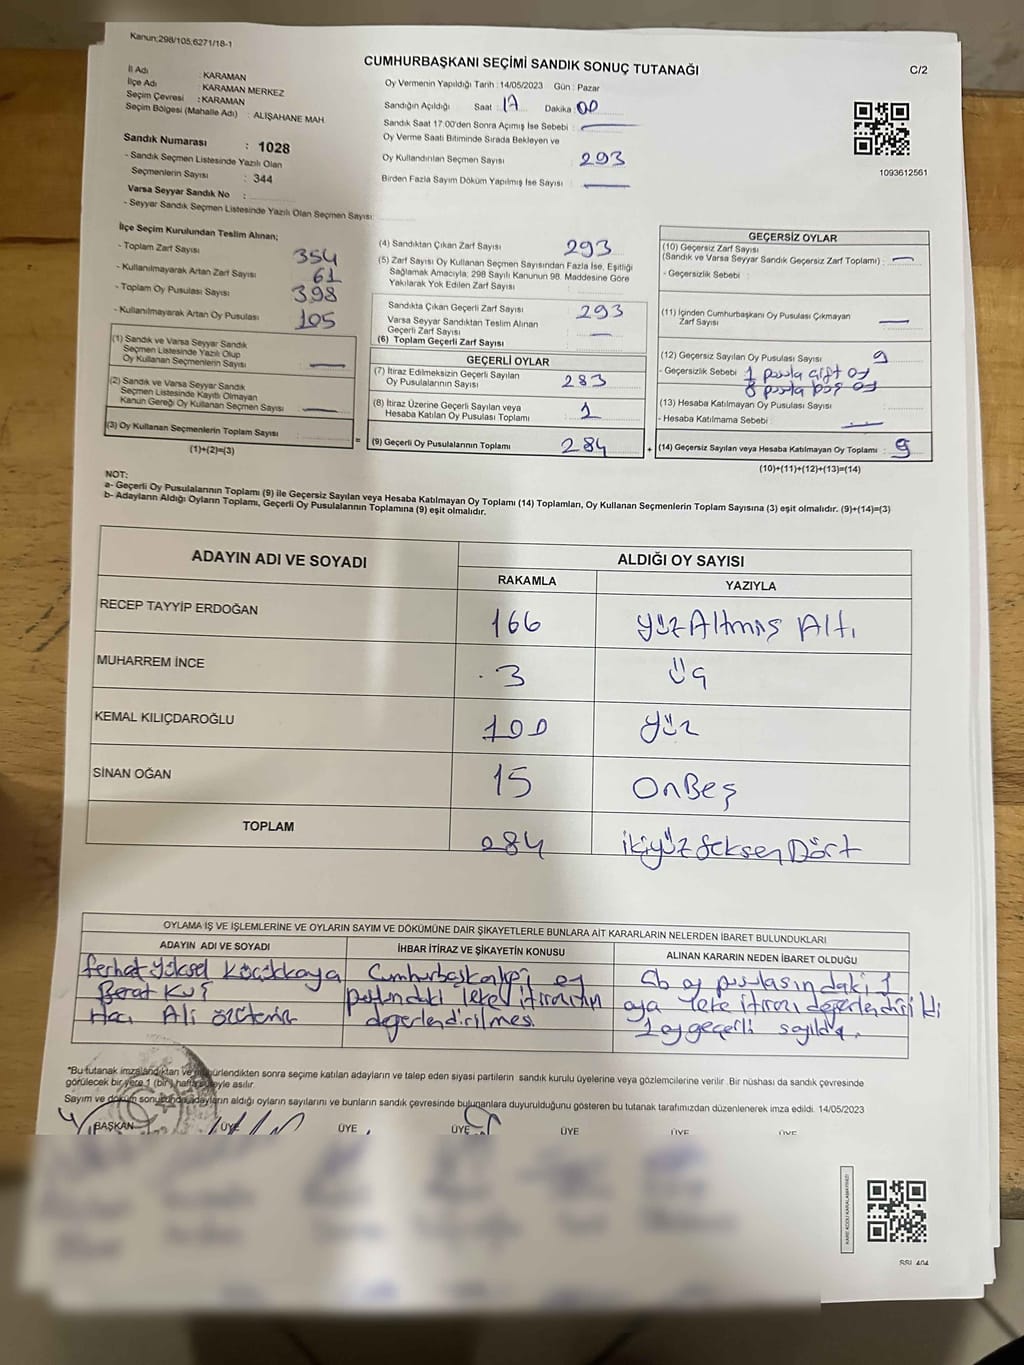 Kanun:298/105;6271/18-1
CUMHURBAŞKANI SEÇİMİ SANDIK SONUÇ TUTANAĞI
C/2
İl Adı : KARAMAN
İlçe Adı : KARAMAN MERKEZ
Seçim Çevresi : KARAMAN
Seçim Bölgesi (Mahalle Adı) : ALİŞAHANE MAH
Sandık Numarası : 1028
- Sandık Seçmen Listesinde Yazılı Olan
Seçmenlerin Sayısı : 344
Varsa Seyyar Sandık No :
- Seyyar Sandık Seçmen Listesinde Yazılı Olan Seçmen Sayısı:
Oy Vermenin Yapıldığı Tarih : 14/05/2023 Gün : Pazar
Sandığın Açıldığı Saat : 17 Dakika : 00
Sandık Saat 17:00'den Sonra Açımış İse Sebebi :
Oy Verme Saati Bitiminde Sırada Bekleyen ve
Oy Kullandırılan Seçmen Sayısı : 293
Birden Fazla Sayım Döküm Yapılmış İse Sayısı :
1093612561
İlçe Seçim Kurulundan Teslim Alınan;
- Toplam Zarf Sayısı 354
- Kullanılmayarak Artan Zarf Sayısı 61
- Toplam Oy Pusulası Sayısı 398
- Kullanılmayarak Artan Oy Pusulası 105
(1) Sandık ve Varsa Seyyar Sandık
Seçmen Listesinde Yazılı Olup
Oy Kullanan Seçmenlerin Sayısı :
(2) Sandık ve Varsa Seyyar Sandık
Seçmen Listesinde Kayıtlı Olmayan
Kanun Gereği Oy Kullanan Seçmen Sayısı :
(3) Oy Kullanan Seçmenlerin Toplam Sayısı
(1)+(2)=(3)
(4) Sandıktan Çıkan Zarf Sayısı : 293
(5) Zarf Sayısı Oy Kullanan Seçmen Sayısından Fazla İse, Eşitliği
Sağlamak Amacıyla; 298 Sayılı Kanunun 98. Maddesine Göre
Yakılarak Yok Edilen Zarf Sayısı :
Sandıkta Çıkan Geçerli Zarf Sayısı : 293
Varsa Seyyar Sandıktan Teslim Alınan
Geçerli Zarf Sayısı :
(6) Toplam Geçerli Zarf Sayısı :
GEÇERLİ OYLAR
(7) İtiraz Edilmeksizin Geçerli Sayılan
Oy Pusulalarının Sayısı : 283
(8) İtiraz Üzerine Geçerli Sayılan veya
Hesaba Katılan Oy Pusulası Toplamı : 1
(9) Geçerli Oy Pusulalarının Toplamı : 284
GEÇERSİZ OYLAR
(10) Geçersiz Zarf Sayısı
(Sandık ve Varsa Seyyar Sandık Geçersiz Zarf Toplamı) :
- Geçersizlik Sebebi :
(11) İçinden Cumhurbaşkanı Oy Pusulası Çıkmayan
Zarf Sayısı :
(12) Geçersiz Sayılan Oy Pusulası Sayısı : 9
- Geçersizlik Sebebi : 1 pusula çift oy
8 pusula boş oy
(13) Hesaba Katılmayan Oy Pusulası Sayısı :
- Hesaba Katılmama Sebebi :
(14) Geçersiz Sayılan veya Hesaba Katılmayan Oy Toplamı : 9
(10)+(11)+(12)+(13)=(14)
NOT:
a- Geçerli Oy Pusulalarının Toplamı (9) ile Geçersiz Sayılan veya Hesaba Katılmayan Oy Toplamı (14) Toplamları, Oy Kullanan Seçmenlerin Toplam Sayısına (3) eşit olmalıdır. (9)+(14)=(3)
b- Adayların Aldığı Oyların Toplamı, Geçerli Oy Pusulalarının Toplamına (9) eşit olmalıdır.
ADAYIN ADI VE SOYADI ALDIĞI OY SAYISI
RAKAMLA YAZIYLA
RECEP TAYYİP ERDOĞAN 166 yüzAltmış Altı
MUHARREM İNCE 3 üç
KEMAL KILIÇDAROĞLU 100 yüz
SİNAN OĞAN 15 OnBeş
TOPLAM 284 ikiyüzseksenDört
OYLAMA İŞ VE İŞLEMLERİNE VE OYLARIN SAYIM VE DÖKÜMÜNE DAİR ŞİKAYETLERLE BUNLARA AİT KARARLARIN NELERDEN İBARET BULUNDUKLARI
ADAYIN ADI VE SOYADI İHBAR İTİRAZ VE ŞİKAYETİN KONUSU ALINAN KARARIN NEDEN İBARET OLDUĞU
Ferhat Yüksel Küçükkaya Cumhurbaşkanlığı oy Cb oy pusulasındaki 1
Berat Kuş leke itirazının oya leke itirazı değerlendirildi
Hacı Ali değerlendirilmesi. 1 oy geçerli sayıldı.
*Bu tutanak imzalandıktan ve mühürlendikten sonra seçime katılan adayların ve talep eden siyasi partilerin sandık kurulu üyelerine veya gözlemcilerine verilir. Bir nüshası da sandık çevresinde
görülecek bir yere 1 (bir) hafta süreyle asılır.
Sayım ve döküm sonucunda adayların aldığı oyların sayılarını ve bunların sandık çevresinde bulunanlara duyurulduğunu gösteren bu tutanak tarafımızdan düzenlenerek imza edildi. 14/05/2023
BAŞKAN ÜYE ÜYE ÜYE ÜYE ÜYE ÜYE